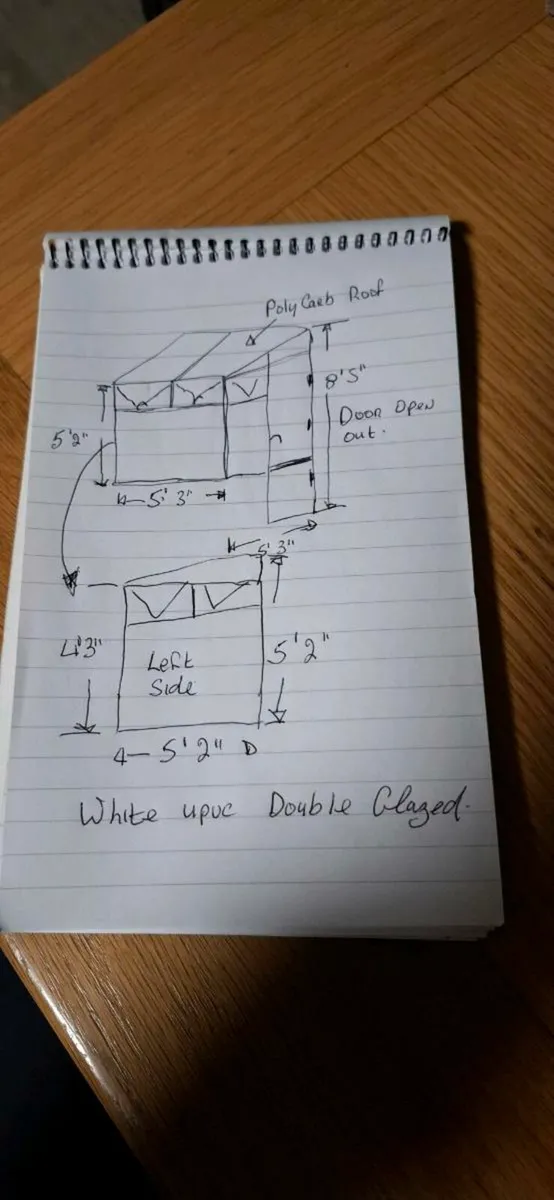 Poly Carb Roof
8'5"
Door Open
out.
5'2"
5'3"
5'3"
4'3"
Left
Side
5'2"
5'2"
White upvc Double Glazed.